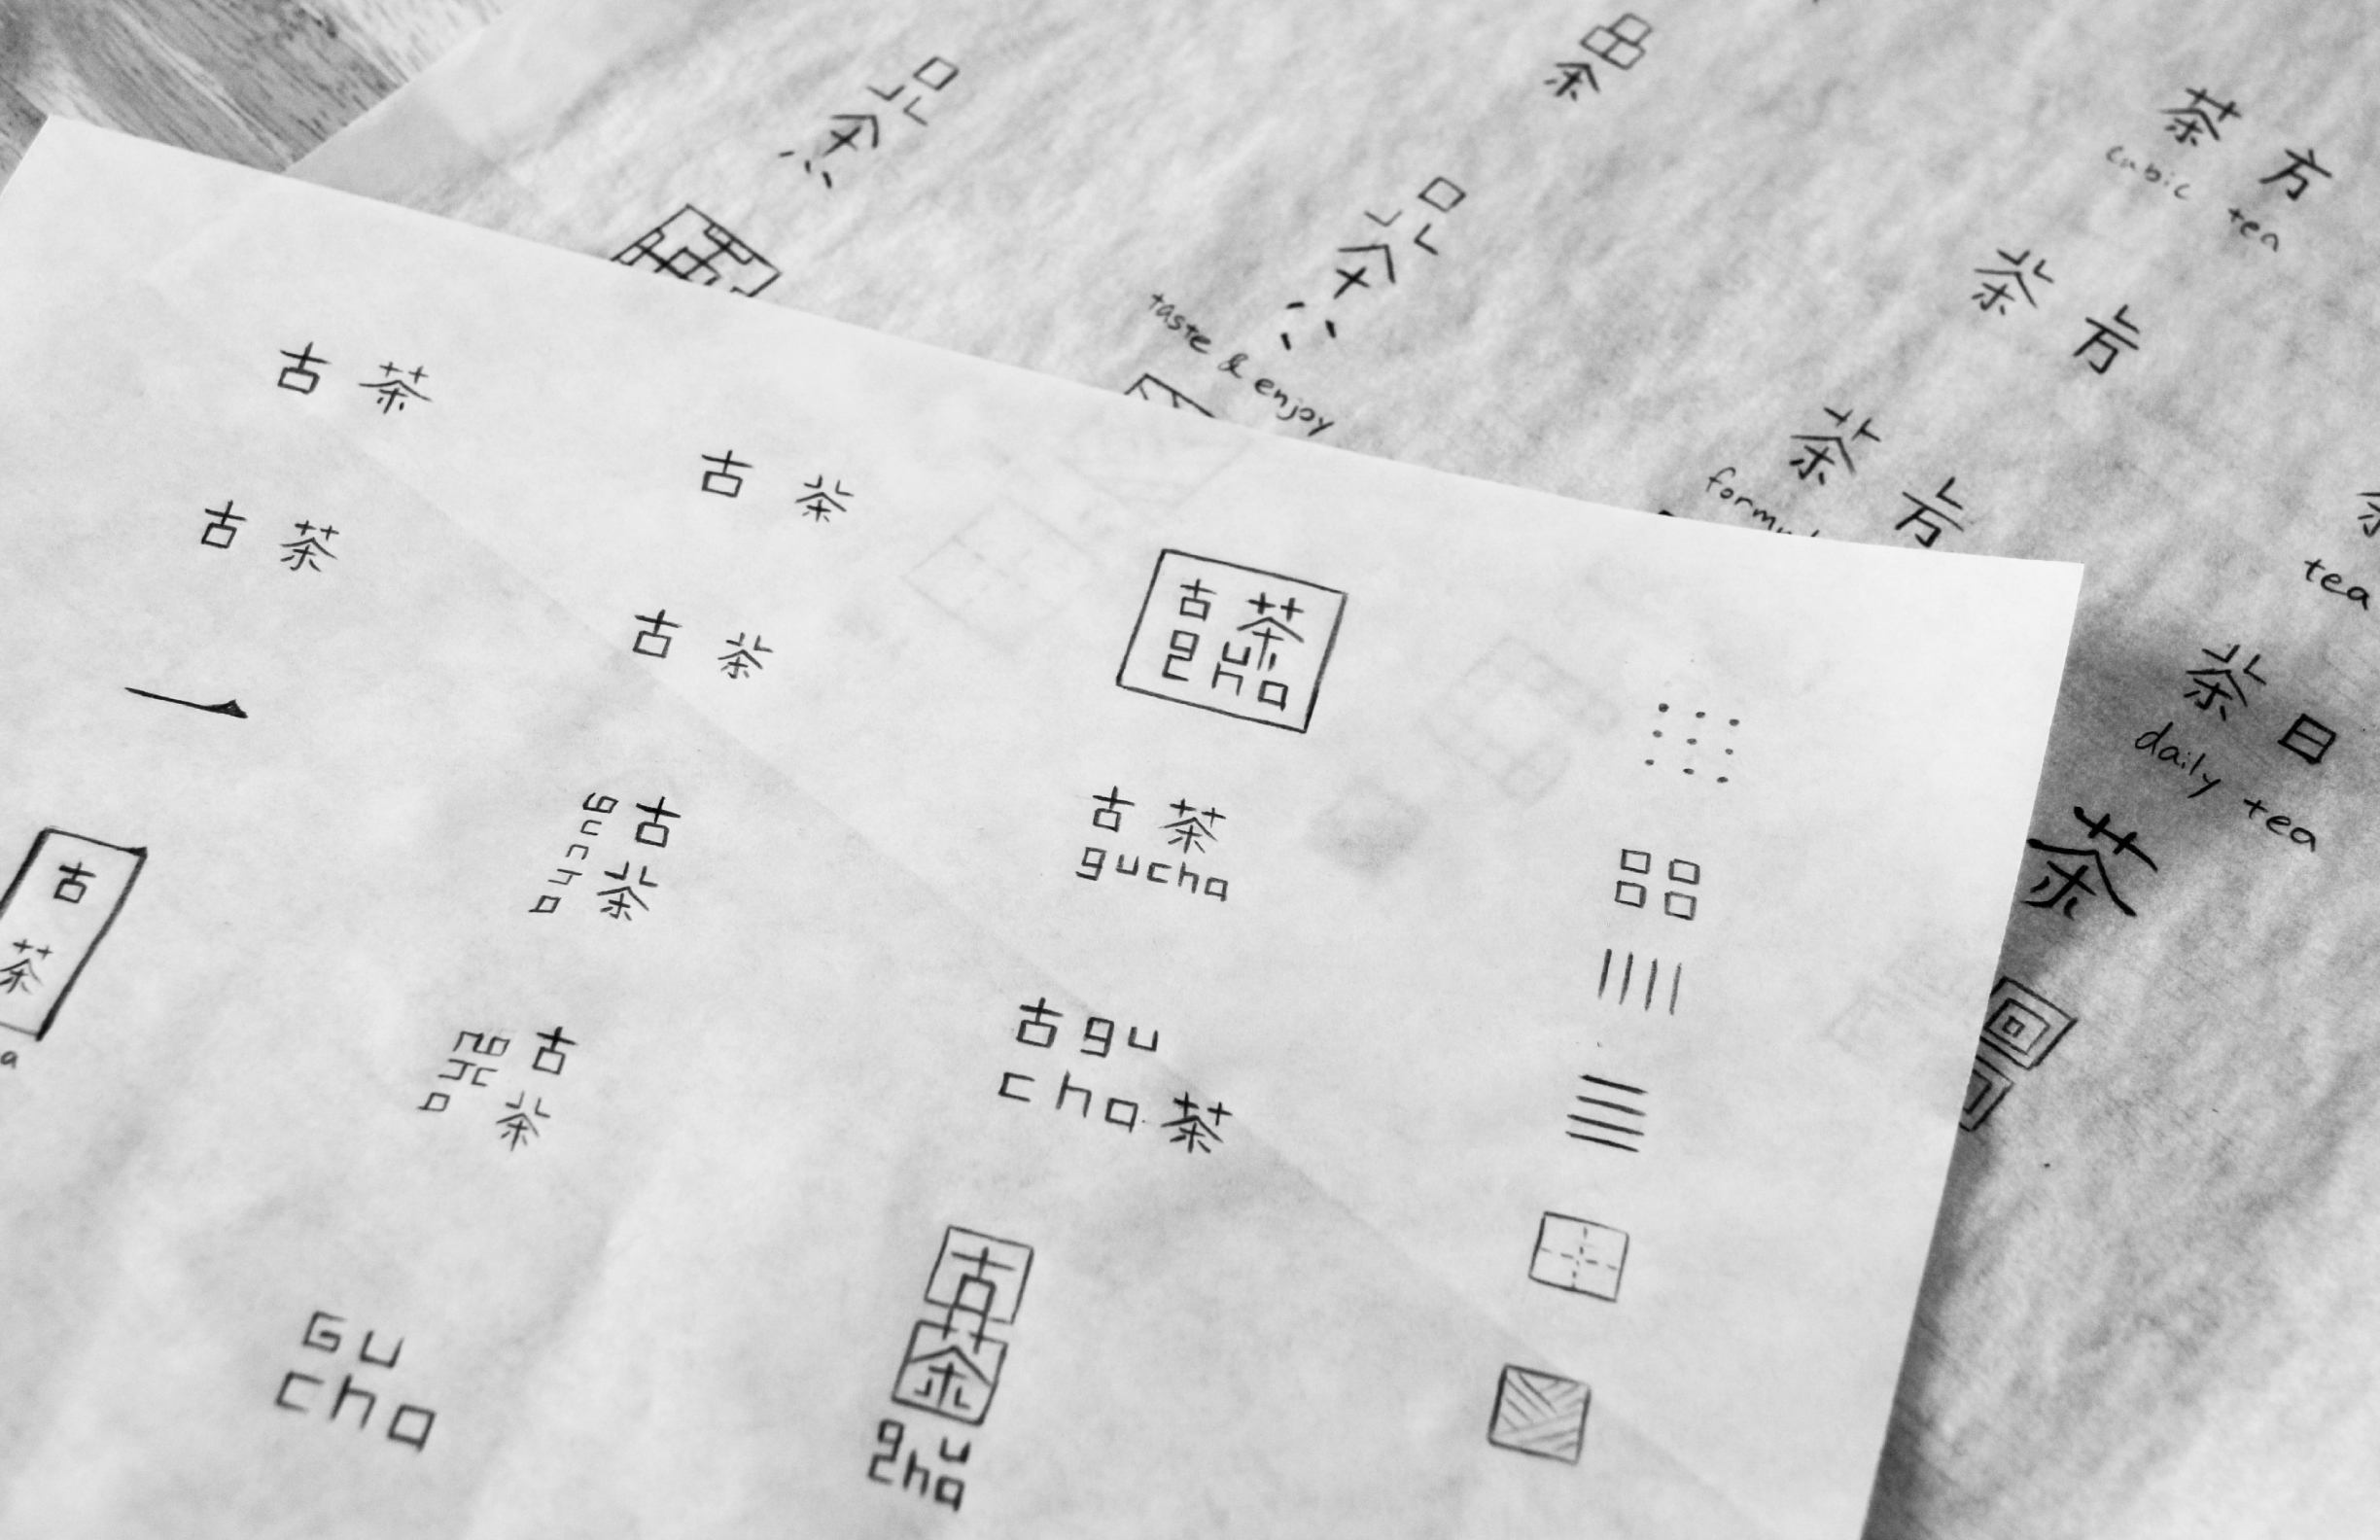 品茶
品茶
品茶
taste & enjoy
茶方
cubic tea
茶方
茶方
tea
茶日
daily tea
茶
古茶
古茶
古茶
古茶
古茶
gucha
古茶
gucha
古茶
gucha
古茶
gucha
古 gu
cha 茶
古茶
a
Gu
cha
古茶
gucha